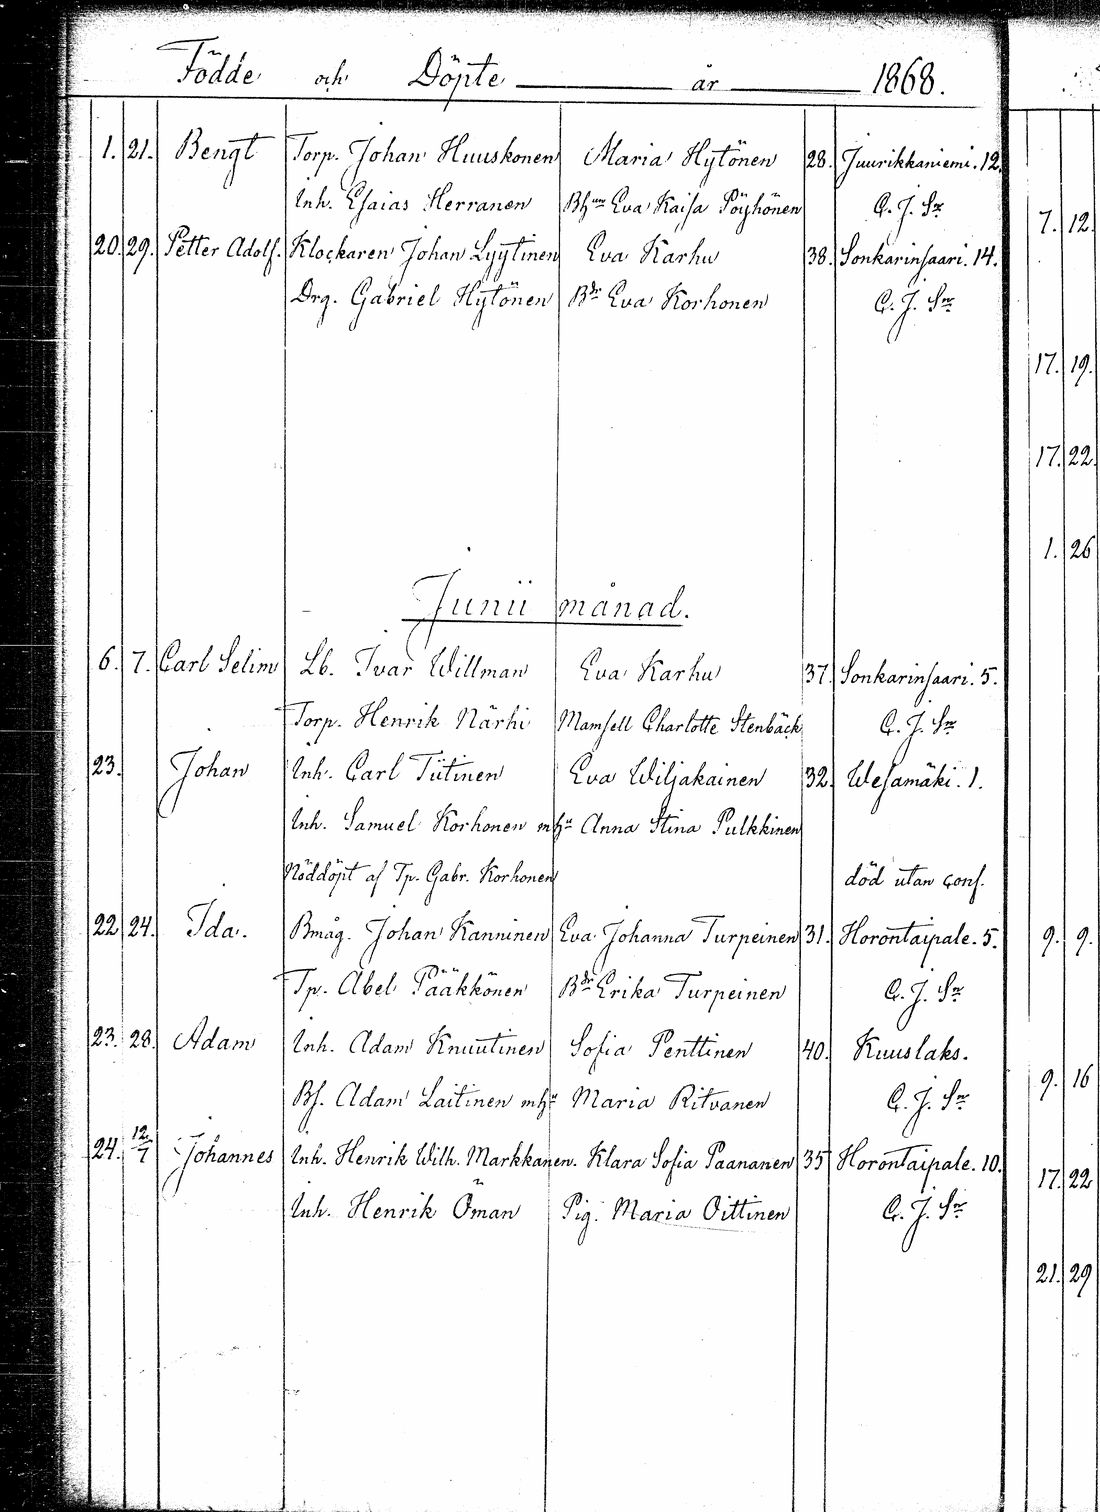 Födde och Döpte år 1868.
1. 21. Bengt Torp. Johan Huuskonen Maria Hytönen 28. Juurikkaniemi. 12.
Inh. Esaias Herranen Bhun Eva Kaisa Pöyhönen C. J. Sr
20. 29. Petter Adolf. Klockaren Johan Lyytinen Eva Karhu 38. Sonkarinsaari. 14.
Drg. Gabriel Hytönen Bdr Eva Korhonen C. J. Sr
Junii månad.
6. 7. Carl Selim Lb. Ivar Willman Eva Karhu 37. Sonkarinsaari. 5.
Torp. Henrik Närhi Mamsell Charlotte Stenbäck C. J. Sr
23. Johan Inh. Carl Tiitinen Eva Wiljakainen 32. Wesamäki. 1.
Inh. Samuel Korhonen mhu Anna Stina Pulkkinen
Nöddöpt af Tp. Gabr. Korhonen död utan conf.
22 24. Ida. Bmåg. Johan Kanninen Eva Johanna Turpeinen 31. Horontaipale. 5.
Tp. Abel Pääkkönen Bdr Erika Turpeinen C. J. Sr
23. 28. Adam Inh. Adam Knuutinen Sofia Penttinen 40. Kuuslaks.
Bf. Adam Laitinen mhu Maria Ritvanen C. J. Sr
24. 12/7 Johannes Inh. Henrik Wilh. Markkanen. Klara Sofia Paananen 35 Horontaipale. 10.
Inh. Henrik Öman Pig. Maria Oittinen C. J. Sr
7. 12.
17. 19.
17. 22.
1. 26
9. 9.
9. 16
17. 22
21. 29